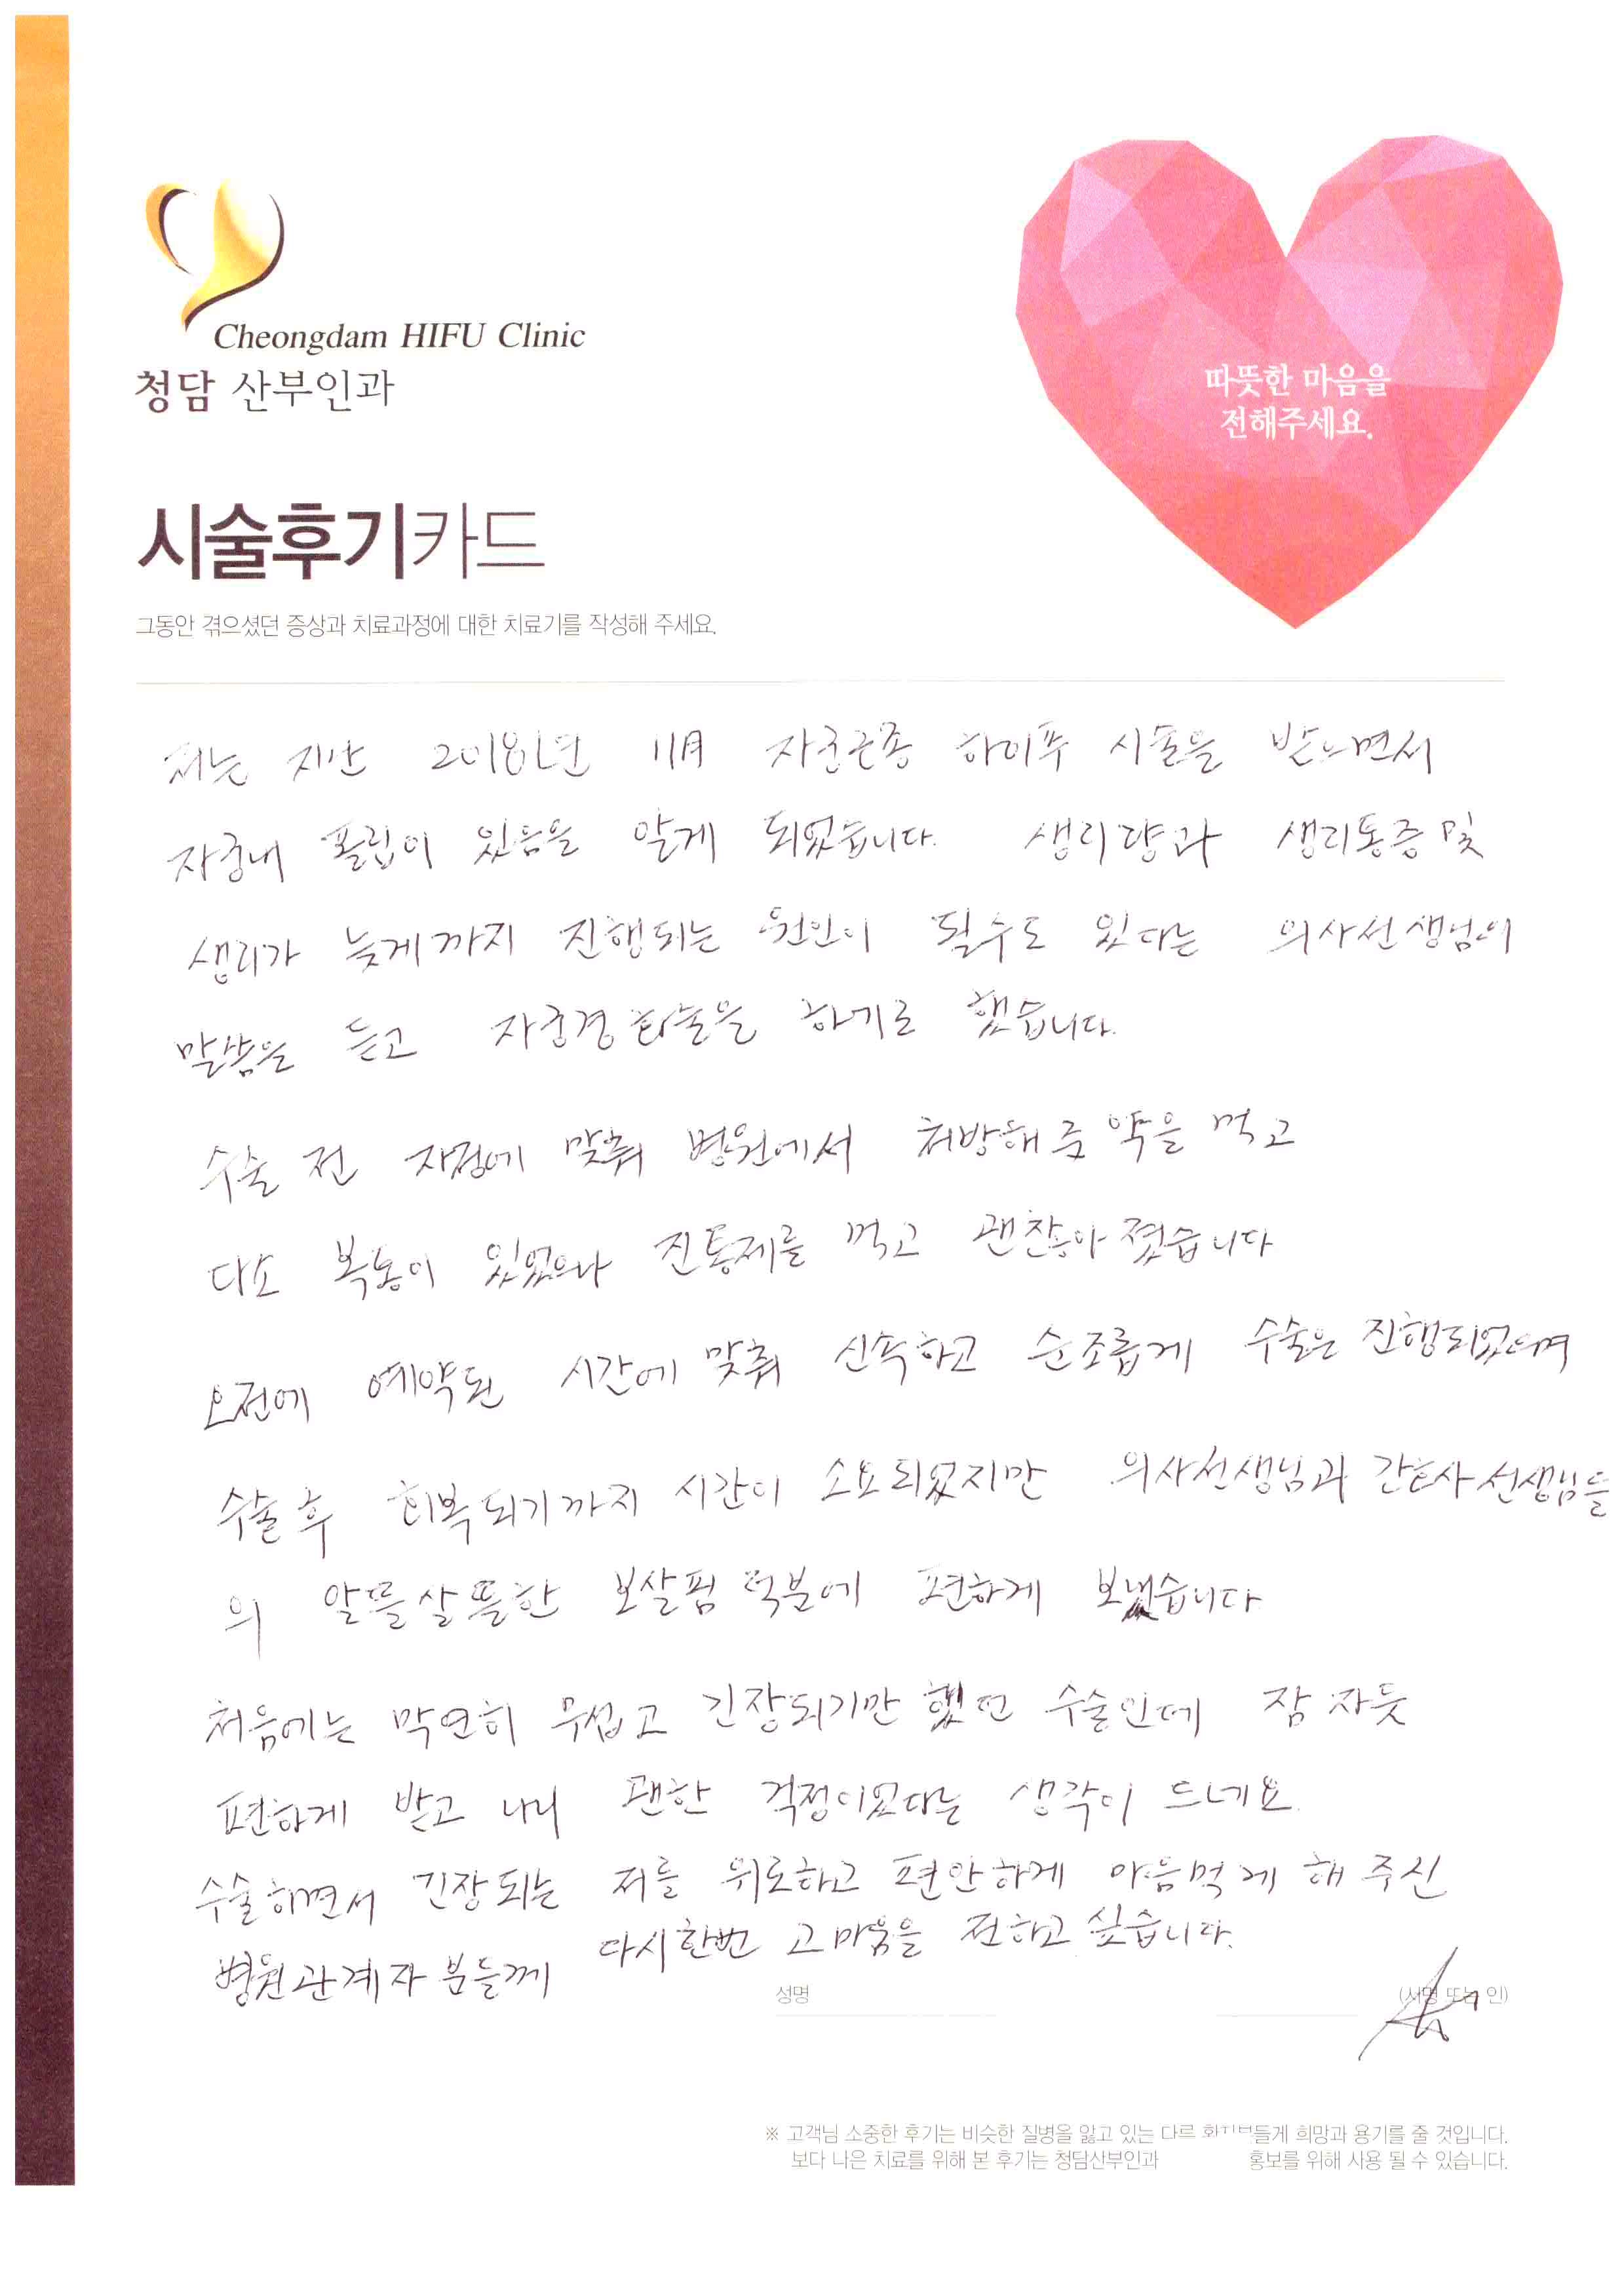 Cheongdam HIFU Clinic
청담 산부인과
따뜻한 마음을
전해주세요.
시술후기카드
그동안 겪으셨던 증상과 치료과정에 대한 치료기를 작성해 주세요.
저는 지난 2018년 11月 자궁근종 하이푸 시술을 받으면서
자궁내 폴립이 있음을 알게 되었습니다. 생리량과 생리통증 및
생리가 늦게까지 진행되는 원인이 될수도 있다는 의사선생님의
말씀을 듣고 자궁경 수술을 하기로 했습니다.
수술 전 자정에 맞춰 병원에서 처방해준 약을 먹고
다소 복통이 있었으나 진통제를 먹고 괜찮아졌습니다
오전에 예약된 시간에 맞춰 신속하고 순조롭게 수술은 진행되었으며
수술후 회복되기까지 시간이 소요되었지만 의사선생님과 간호사선생님들
의 알뜰살뜰한 보살핌 덕분에 편하게 보냈습니다
처음에는 막연히 무섭고 긴장되기만 했던 수술인데 잠 자듯
편하게 받고 나니 괜한 걱정이었다는 생각이 드네요.
수술하면서 긴장되는 저를 위로하고 편안하게 마음먹게 해 주신
병원관계자 분들께 다시한번 고마움을 전하고 싶습니다.
성명 (서명 또는 인)
※ 고객님 소중한 후기는 비슷한 질병을 앓고 있는 다른 들게 희망과 용기를 줄 것입니다.
보다 나은 치료를 위해 본 후기는 청담산부인과 홍보를 위해 사용 될 수 있습니다.